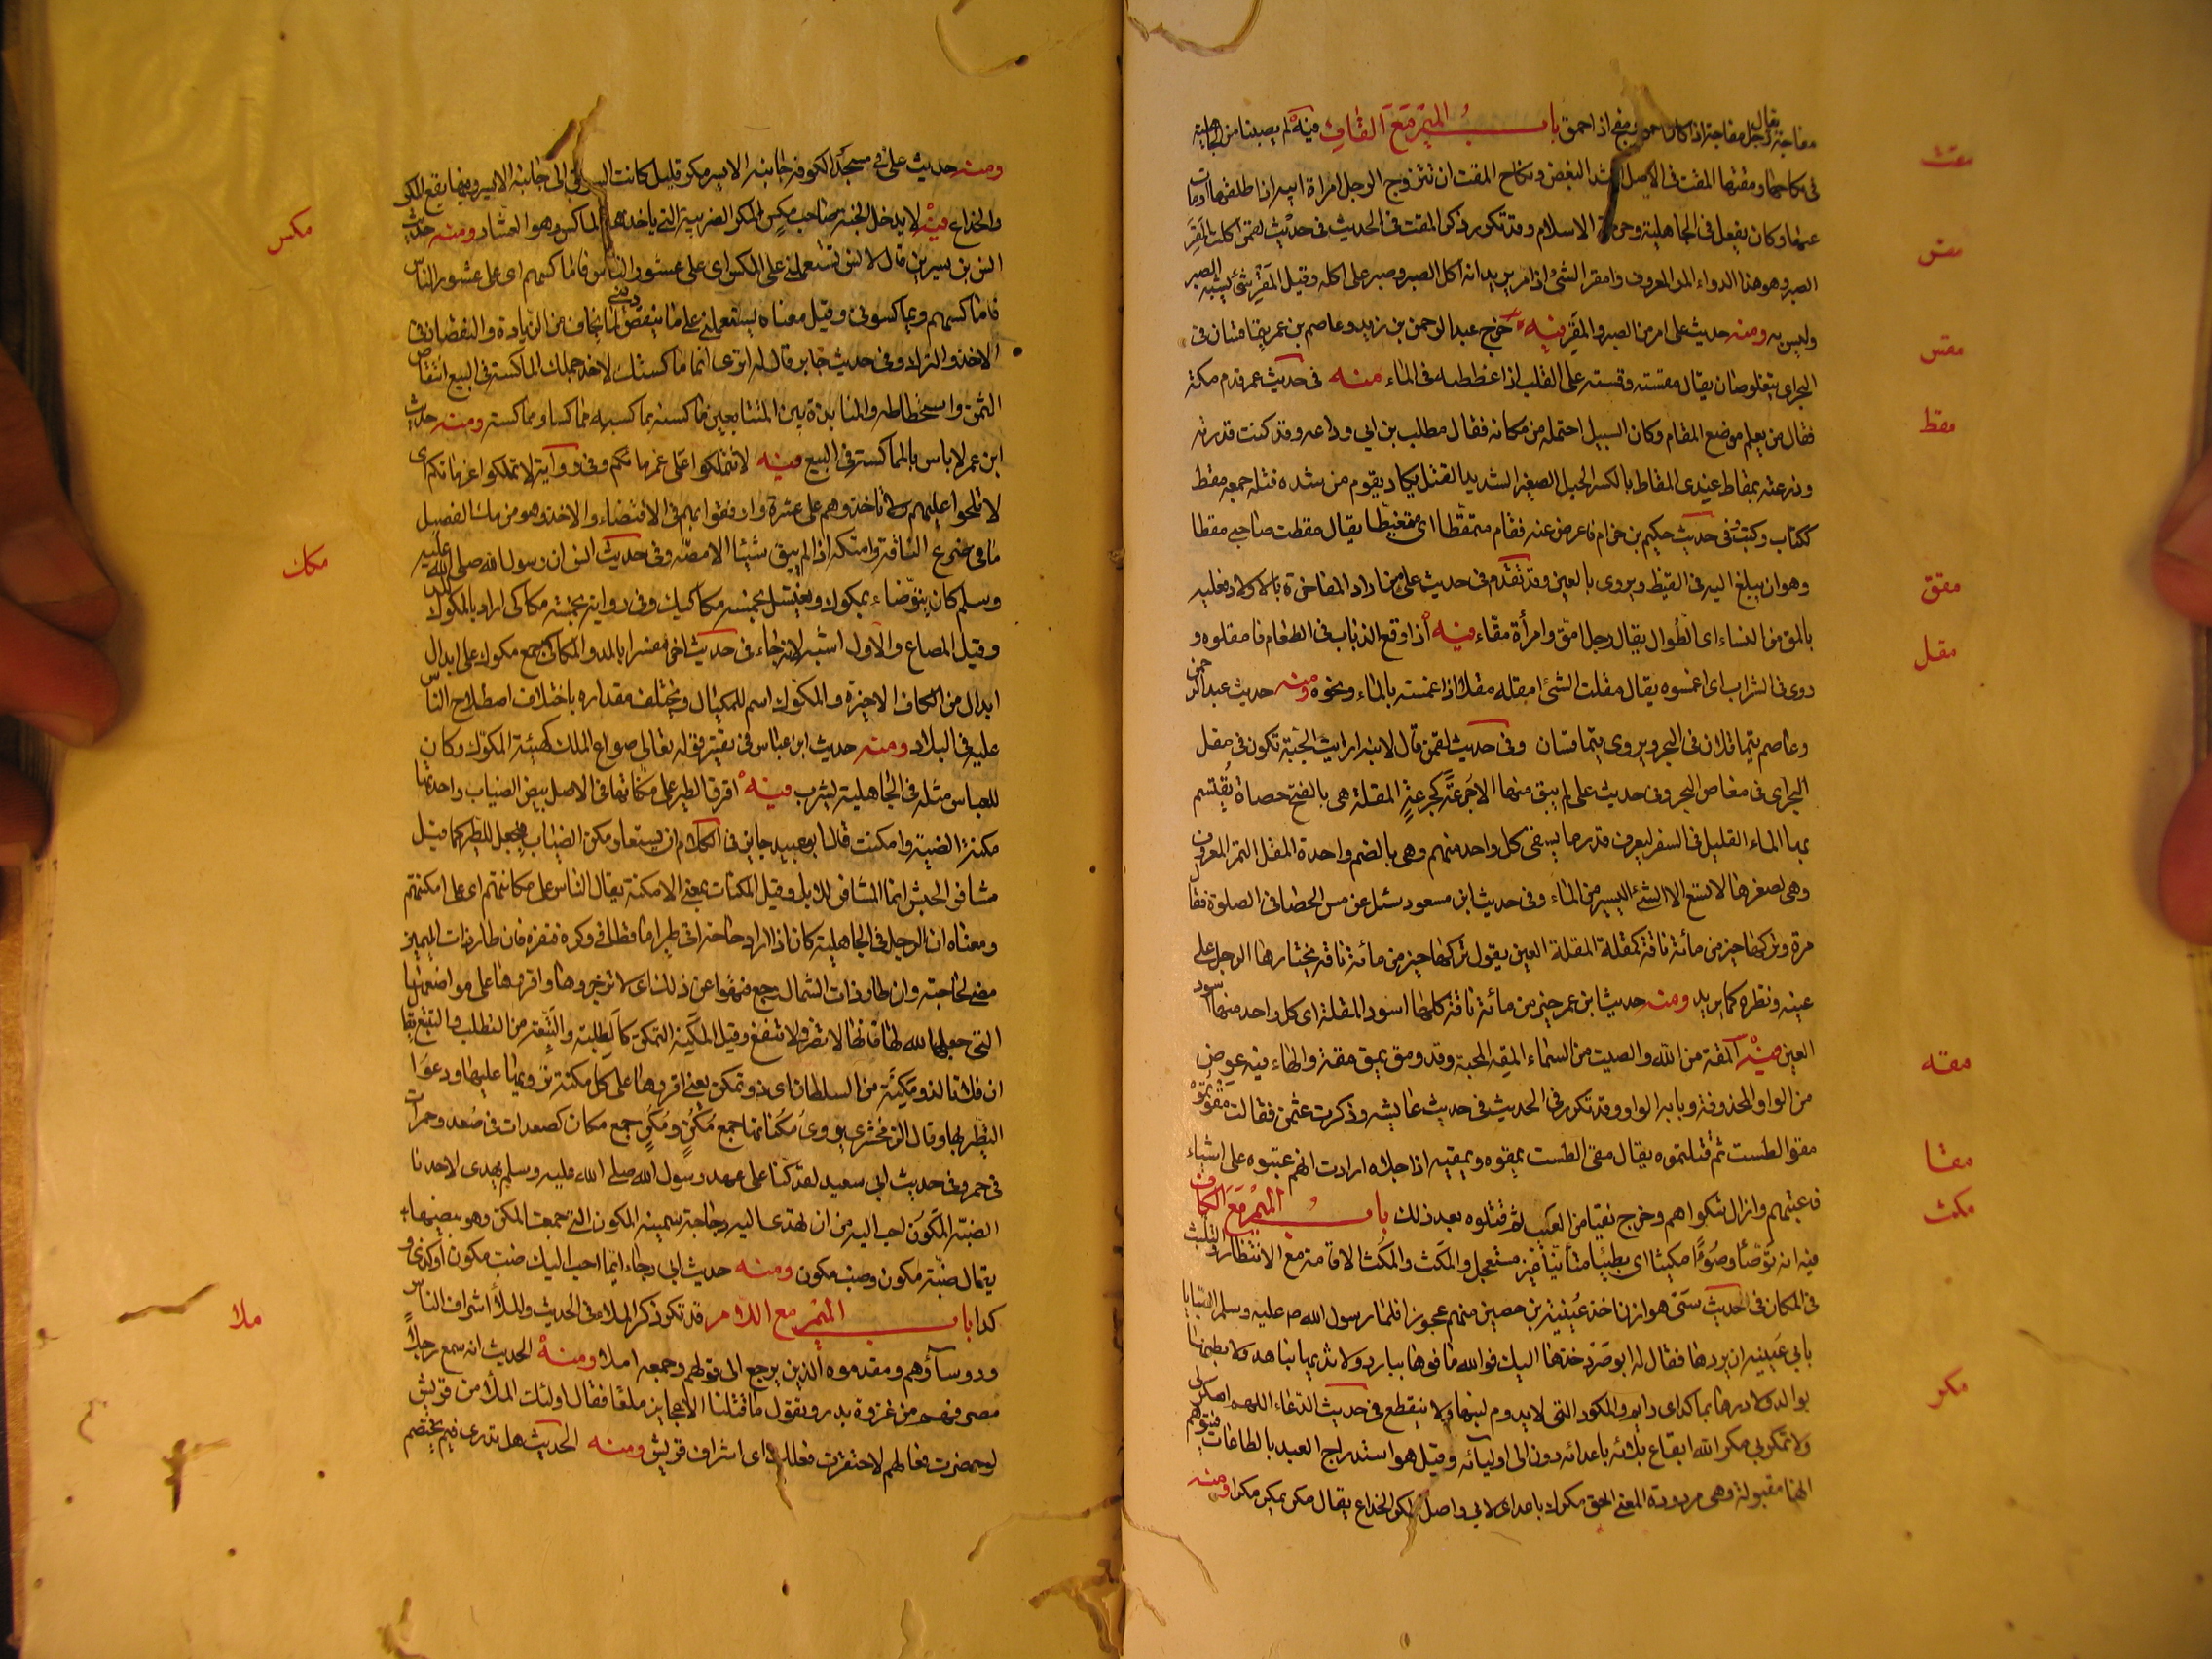 باب الميم مع القاف فيه لم يصبنا من الجاهلية
مقت
في نكاحها ومقتها المقت في الاصل اشد البغض ونكاح المقت ان يتزوج الرجل امراة ابيه اذا طلقها او مات
عنها وكان يفعل في الجاهلية وحرمه الاسلام وقد تكرر ذكر المقت في الحديث في حديث لقمن اكلت المقر
الصبر وهو هذا الدواء المر المعروف وامقر الشئ اذا امر يريد انه اكل الصبر وصبر على اكله وقيل المقر شئ يشبه الصبر
وليس به ومنه حديث على امر من الصبر والمقر فيه خرج عبد الرحمن بن زيد وعاصم بن عمر يتماقسان في
مقس
البحر اى يتغاوصان يقال مقسته وقمسته على القلب اذا غططته في الماء منه في حديث عمر قدم مكة
مقط
فقال من يعلم موضع المقام وكان السيل احتمله من مكانه فقال مطلب بن ابي وداعه وقد كنت قدرته
وذرعته بمقاط عندى المقاط بالكسر الحبل الصغير الشديد الفتل يكاد يقوم من شده فتله جمعه مقط
ككتاب وكتب في حديث حكيم بن حزام فاعرض عنه فقام متمقطا اى متغيظا يقال مقطت صاحبي مقطا
وهو ان يبلغ اليه في الغيظ ويروى بالعين وقد تقدم في حديث على من اراد المفاخرة بالاولاد فعليه
مقق
بالمق من النساء اى الطوال يقال رجل امق وامرأة مقاء فيه اذا وقع الذباب في الطعام فامقلوه و
مقل
روى في الشراب اى اغمسوه يقال مقلت الشئ امقله مقلا اذا غمسته بالماء ونحوه ومنه حديث عبد الرحمن
وعاصم يتماقلان في البحر ويروى يتماقسان وفي حديث لقمن قال لابنه ارايت الحبة تكون في مقل
البحر اى في مغاص البحر وفي حديث على لم يبق منها الا جرعة كجرعة المقلة هى بالفتح حصاة يقتسم
بها الماء القليل في السفر ليعرف قدر ما يسقى كل واحد منهم وهى بالضم واحدة المقل الثمر المعروف
وهى لصغرها لا تسع الا الشئ اليسير من الماء وفي حديث ابن مسعود سئل عن مس الحصا في الصلوة فقال
مرة وتركها خير من مائة ناقة كمقلة المقلة العين يقول تركها خير من مائة ناقة يختارها الرجل على
عينه ونظره كما يريد ومنه حديث ابن عمر خير من مائة ناقة كلها اسود المقلة اى كل واحد منها اسود
العين فيه المقة من الله والصيت من السماء المقه المحبة وقد ومق يمق مقة والهاء فيه عوض
مقه
من الواو المحذوفة وبابه الواو وقد تكرر في الحديث في حديث عايشه وذكرت عثمن فقالت مقوتموه
مقو الطست ثم قتلتموه يقال مقى الطست يمقوه ويمقيه اذا جلاه ارادت انهم عتبوه على اشياء
مقا
فاعتبهم وازال شكواهم وخرج نقيا من العيب ثم قتلوه بعد ذلك باب الميم مع الكاف
مكث
فيه انه توضأ وضوءا مكيثا اى بطيئا متأنيا غير مستعجل والمكث والمكث الاقامة مع الانتظار والتلبث
في المكان في حديث سبى هوازن اخذ عيينة بن حصين منهم عجوزا فلما رسول الله صلم عليه وسلم السبايا
بابي عيينه ان يردها فقال له ابو صرد خذها اليك فوالله ما فوها ببارد ولا ثديها بناهد ولا بطنها
بوالد ولا درها بماكد اى دايم والمكود التي لا يدوم لبنها ولا ينقطع في حديث الدعاء اللهم امكر لى
مكر
ولا تمكر بي مكر الله ايقاع بلائه باعدائه دون اوليائه وقيل هو استدراج العبد بالطاعات فيتوهم
انها مقبولة وهى مردودة المعنى الحق مكرك باعدائى لا بي واصل المكر الخداع يقال مكر يمكر مكرا ومنه
ومنه حديث على في مسجد الكوفة جانبه الايسر مكر قيل كانت السوق الى جانبه الايسر وفيها يقع المكر
والخداع فيه لا يدخل الجنة صاحب مكس المكس الضريبة التي ياخذها الماكس وهو العشار ومنه حديث
مكس
انس بن سيرين قال لانس تستعملني على المكس اى على عشور الناس فاماكسهم اى على عشور الناس
فاماكسهم ويماكسوني وقيل معناه يستعملني على ما ينقص ديني لما يخاف من الزيادة والنقصان في
الاخذ والترك وفي حديث جابر قال له اترى انما ماكستك لاخذ جملك المماكسة في البيع انتقاص
الثمن واستحطاطه والمنابذة بين المتبايعين ماكسه يماكسه مكاسا ومماكسة ومنه حديث
ابن عمر لاباس بالمماكسة في البيع فيه لا تتمككوا على غرمائكم وفي رواية لا تمككوا غرمائكم اى
لا تلحوا عليهم ولا تاخذوهم على عشرة وارفقوا بهم في الاقتضاء والاخذ وهو من مك الفصيل
مكك
ما في ضرع الناقة وامتكه اذا لم يبق شيئا الا مصه وفي حديث انس ان رسول الله صلى الله عليه
وسلم كان يتوضاء بمكوك ويغتسل بخمسة مكاكيك وفي رواية بخمسة مكاكى اراد بالمكوك المد
وقيل الصاع والاول اشبه لانه جاء في حديث اخر مفسرا بالمد والمكاكى جمع مكوك على ابدال
ابدال من الكاف الاخيرة والمكوك اسم للمكيال ويختلف مقداره باختلاف اصطلاح الناس
عليه في البلاد ومنه حديث ابن عباس في تفسير قوله تعالى صواع الملك كهيئة المكوك وكان
للعباس مثله في الجاهلية يشرب فيه اقروا الطير على مكناتها في الاصل بيض الضباب واحدتها
مكنة الضبة وامكنت قال ابو عبيد جايز في الكلام ان يستعار مكن الضباب فيجعل للطير كما قيل
مشافر الحبش انما المشافر للابل وقيل المكنات بمعنى الامكنة يقال الناس على مكناتهم اى على امكنتهم
ومعناه ان الرجل في الجاهلية كان اذا اراد حاجة اتى طيرا ساقطا في وكره فنفره فان طار ذات اليمين
مضى لحاجته وان طار ذات الشمال رجع فنهوا عن ذلك اى لا تزجروها واقروها على مواضعها
التي جعلها الله لها فانها لا تضر ولا تنفع وقيل المكنة التمكن كالطلبة والتبعة من التطلب والتتبع يقال
ان فلانا لذو مكنة من السلطان اى ذو تمكن يعنى اقروها على كل مكنة ترونها عليها ودعوا
التطير بها وقال الزمخشرى يروى مكناتها جمع مكن ومكن جمع مكان كصعدات في صعد وحمرات
في حمر وفي حديث ابي سعيد لقد كنا على عهد رسول الله صلى الله عليه وسلم يهدى لاحدنا
الضبة المكون احب اليه من ان يهدى اليه دجاجة سمينة المكون التي جمعت المكن وهو بيضها
يقال ضبة مكون وضب مكون ومنه حديث ابي رجاء ايما احب اليك ضب مكون او كذى و
كذا باب الميم مع اللام قد تكرر ذكر الملا في الحديث والملأ اشراف الناس
ملا
وروساؤهم ومقدموه الذين يرجع الى قولهم وجمعه املا ومنه الحديث انه سمع رجلا
منصرفهم من غزوة بدر ويقول ما قتلنا الا عجايز صلعا فقال اولئك الملأ من قريش
لو حضرت فعالهم لاحتقرت فعلك اى اشراف قريش ومنه الحديث هل تدرى فيم يختصم